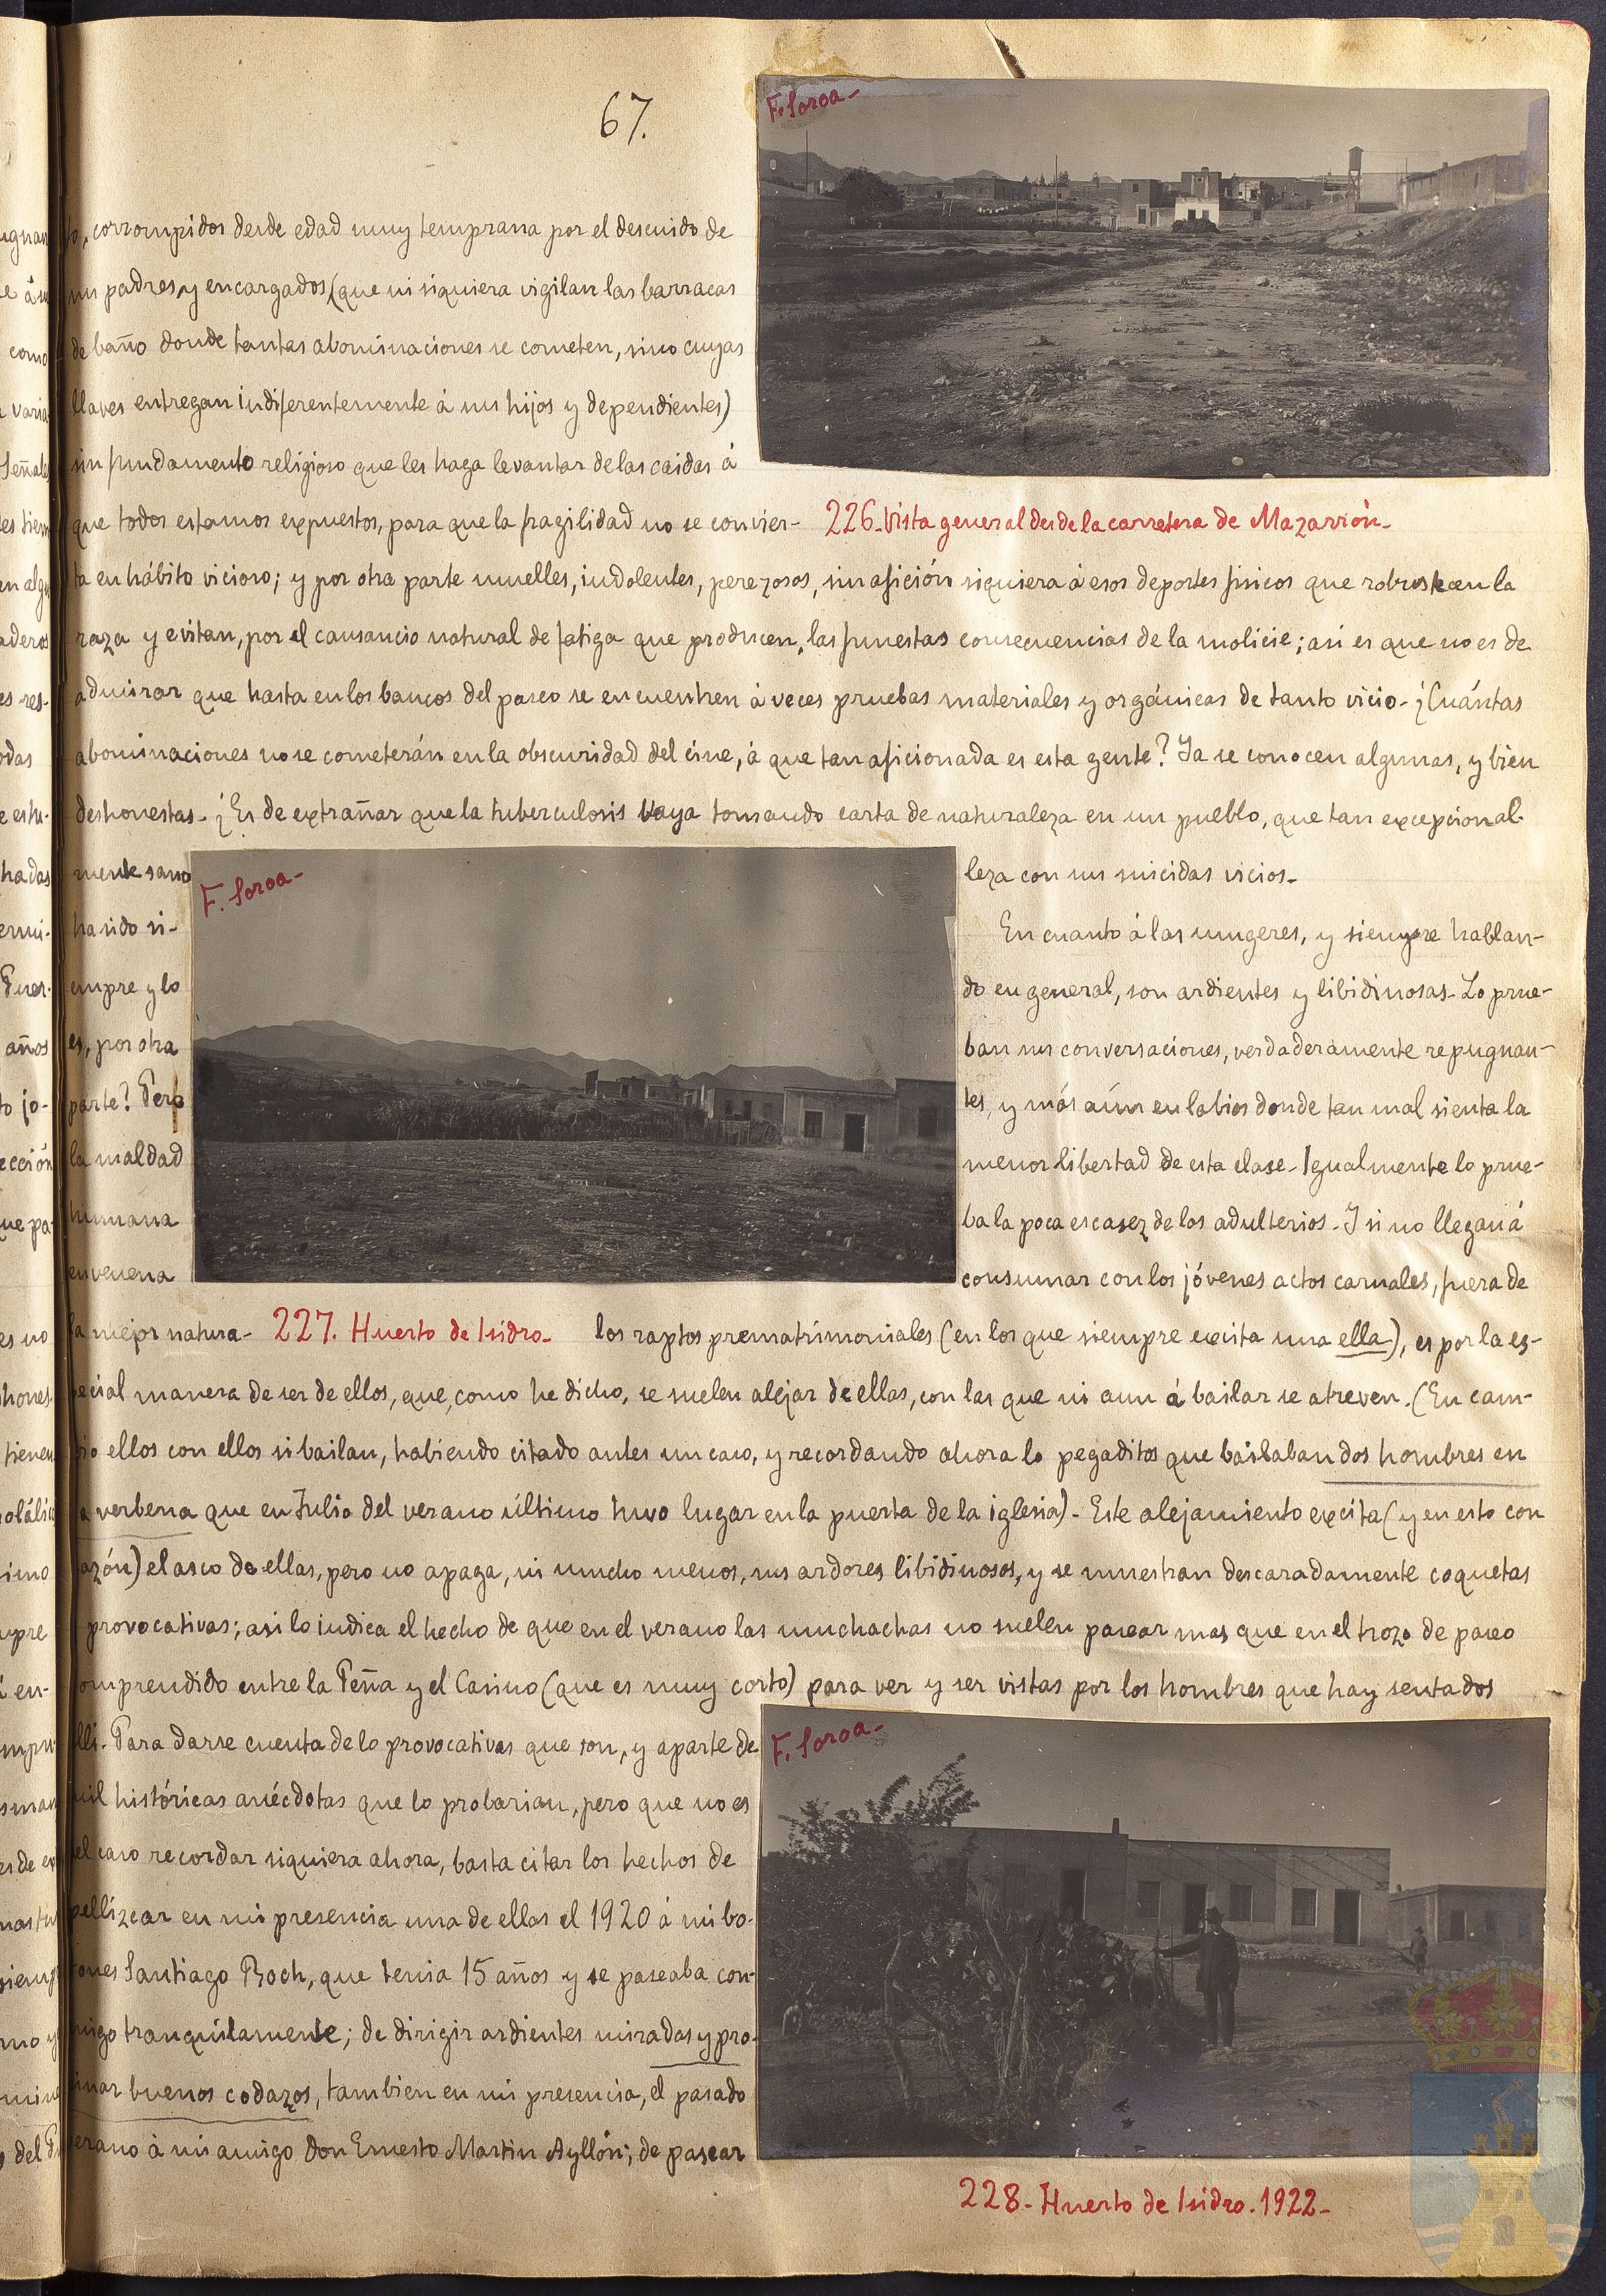 67.
F. Soroa-
to, corrompidos desde edad muy temprana por el descuido de
sus padres y encargados, (que ni siquiera vigilan las barracas
de baño donde tantas abominaciones se cometen, sino cuyas
llaves entregan indiferentemente á sus hijos y dependientes)
sin fundamento religioso que les haga levantar de las caidas á
que todos estamos expuestos, para que la fragilidad no se convier-
226. Vista general desde la carretera de Mazarrón-
ta en hábito vicioso; y por otra parte muelles, indolentes, perezosos, sin afición siquiera á esos deportes físicos que robustecen la
raza y evitan, por el cansancio natural de fatiga que producen, las funestas consecuencias de la molicie; asi es que no es de
admirar que hasta en los bancos del paseo se encuentren á veces pruebas materiales y orgánicas de tanto vicio- ¿Cuántas
abominaciones no se cometerán en la obscuridad del cine, á que tan aficionada es esta gente? Ya se conocen algunas, y bien
deshonestas- ¿Es de extrañar que la tuberculosis vaya tomando carta de naturaleza en un pueblo, que tan excepcional-
mente sano
ha sido si-
empre y lo
es, por otra
parte? Pero
la maldad
humana
envenena
la mejor natura-
F. Soroa-
227. Huerto de Isidro-
leza con sus suicidas vicios-
En cuanto á las mugeres, y siempre hablan-
do en general, son ardientes y libidinosas- Lo prue-
ban sus conversaciones, verdaderamente repugnan-
tes, y más aún en labios donde tan mal sienta la
menor libertad de esta clase- Igualmente lo prue-
ba la poca escasez de los adulterios- Y si no llegan á
consumar con los jóvenes actos carnales, fuera de
los raptos prematrimoniales (en los que siempre excita una ella), es por la es-
pecial manera de ser de ellos, que, como he dicho, se suelen alejar de ellas, con las que ni aun á bailar se atreven. (En cam-
bio ellos con ellos si bailan, habiendo citado antes un caso, y recordando ahora lo pegaditos que bailaban dos hombres en
la verbena que en Julio del verano último tuvo lugar en la puerta de la iglesia)- Este alejamiento excita (y en esto con
razón) el asco de ellas, pero no apaga, ni mucho menos, sus ardores libidinosos, y se muestran descaradamente coquetas
provocativas; asi lo indica el hecho de que en el verano las muchachas no suelen pasear mas que en el trozo de paseo
comprendido entre la Peña y el Casino (que es muy corto) para ver y ser vistas por los hombres que hay sentados
alli- Para darse cuenta de lo provocativas que son, y aparte de
mil históricas anécdotas que lo probarian, pero que no es
el caso recordar siquiera ahora, basta citar los hechos de
pellizcar en mi presencia una de ellas el 1920 á mi bo-
tones Santiago Roch, que tenia 15 años y se paseaba con-
migo tranquilamente; de dirigir ardientes miradas y pro-
pinar buenos codazos, tambien en mi presencia, el pasado
verano á mi amigo Don Ernesto Martin Ayllón; de pasear
F. Soroa-
228- Huerto de Isidro- 1922-